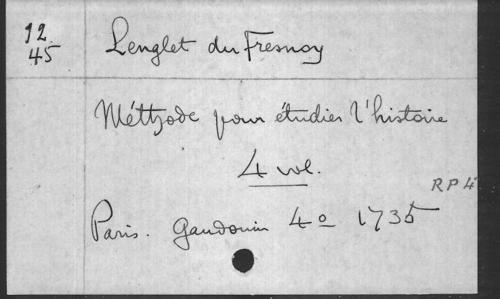 12
45
Lenglet du Fresnoy
Méthode pour étudier l'histoire
4 vol.
RP 4
Paris. Gandouin 4º 1735